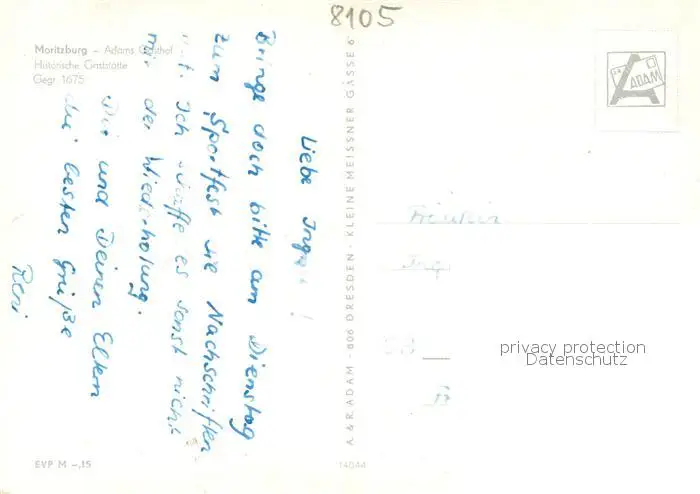 8105
Moritzburg – Adams Gasthof
Historische Gaststätte
Gegr. 1675
Liebe Inge !
Bringe doch bitte am Dienstag
zum Sportfest die Nachschriften
mit. Ich schaffe es sonst nicht
mit der Wiederholung.
Dir und Deinen Eltern
die besten Grüße
Reni
A. & R. ADAM - 806 DRESDEN - KLEINE MEISSNER GASSE 6
ADAM
Fräulein
Ing
privacy protection
Datenschutz
EVP M –,15
14044